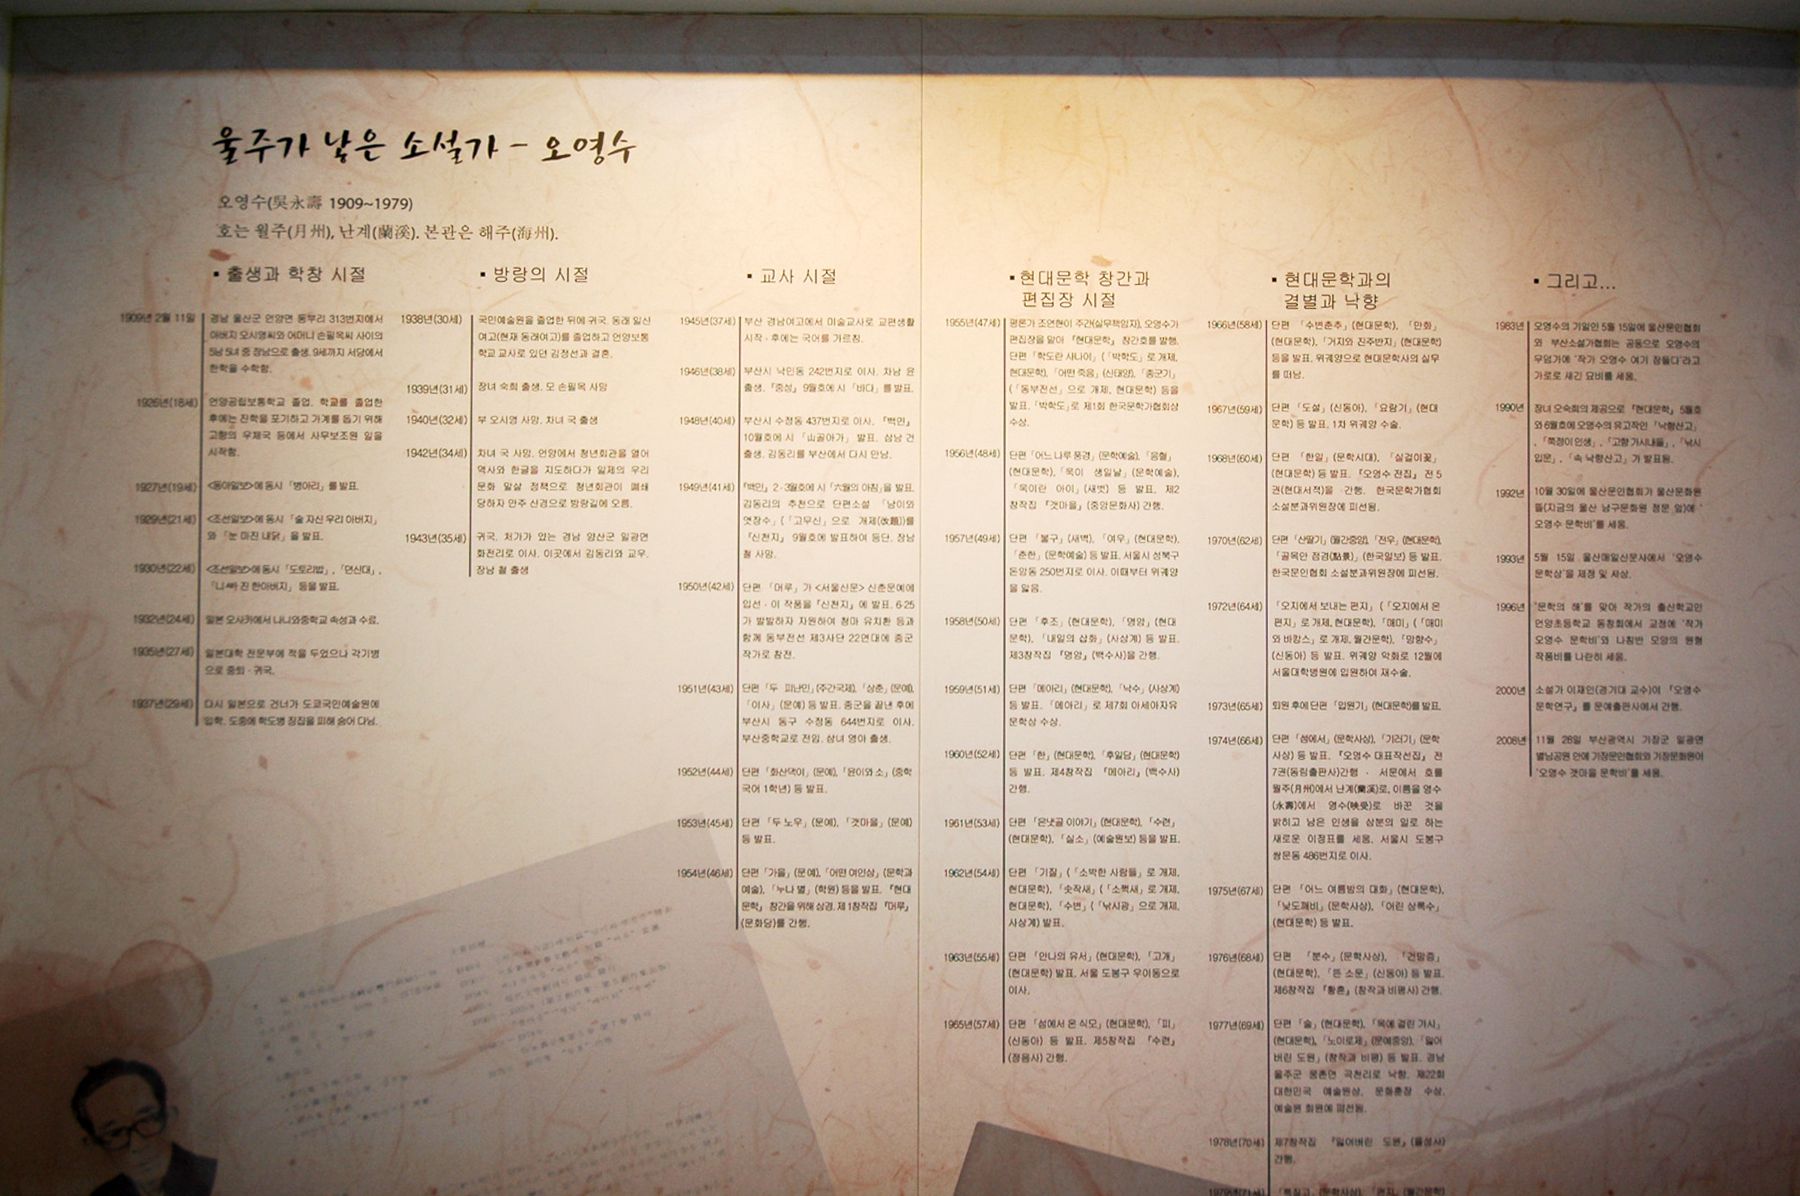 울주가 낳은 소설가 - 오영수
오영수(吳永壽 1909~1979)
호는 월주(月州), 난계(蘭溪). 본관은 해주(海州).
▪ 출생과 학창 시절
1909년 2월 11일
경남 울산군 언양면 동부리 313번지에서
아버지 오시영씨와 어머니 손필옥씨 사이의
5남 5녀 중 장남으로 출생. 9세까지 서당에서
한학을 수학함.
1926년(18세)
언양공립보통학교 졸업. 학교를 졸업한
후에는 진학을 포기하고 가계를 돕기 위해
고향의 우체국 등에서 사무보조원 일을
시작함.
1927년(19세)
<동아일보>에 동시 「병아리」를 발표.
1929년(21세)
<조선일보>에 동시 「술 자신 우리 아버지」
와 「눈 마진 내닭」을 발표.
1930년(22세)
<조선일보>에 동시 「도토리밥」, 「연신대」,
진 한아버지」 등을 발표.
1932년(24세)
일본 오사카에서 나니와중학교 속성과 수료.
1935년(27세)
일본대학 전문부에 적을 두었으나 각기병
으로 중퇴 · 귀국.
1937년(29세)
다시 일본으로 건너가 도쿄국민예술원에
입학. 도중에 학도병 징집을 피해 숨어 다님.
▪ 방랑의 시절
1938년(30세)
국민예술원을 졸업한 뒤에 귀국. 동래 일신
여고(현재 동래여고)를 졸업하고 언양보통
학교 교사로 있던 김정선과 결혼.
1939년(31세)
장녀 숙희 출생. 모 손필옥 사망
1940년(32세)
부 오시영 사망. 차녀 국 출생
1942년(34세)
차녀 국 사망. 언양에서 청년회관을 열어
역사와 한글을 지도하다가 일제의 우리
문화 말살 정책으로 청년회관이 폐쇄
당하자 만주 신경으로 방랑길에 오름.
1943년(35세)
귀국. 처가가 있는 경남 양산군 일광면
화전리로 이사. 이곳에서 김동리와 교우.
장남 철 출생
▪ 교사 시절
1945년(37세)
부산 경남여고에서 미술교사로 교편생활
시작 · 후에는 국어를 가르침.
1946년(38세)
부산시 낙민동 242번지로 이사. 차남 윤
출생. 『중성』 9월호에 시 「바다」를 발표.
1948년(40세)
부산시 수정동 437번지로 이사. 『백민』
10월호에 시 「山골아가」 발표. 삼남 건
출생. 김동리를 부산에서 다시 만남.
1949년(41세)
『백민』 2·3월호에 시 「六월의 아침」을 발표.
김동리의 추천으로 단편소설 「남이와
엿장수」(「고무신」으로 개제(改題))를
『신천지』 9월호에 발표하여 등단. 장남
철 사망.
1950년(42세)
단편 「머루」가 <서울신문> 신춘문예에
입선 · 이 작품을 『신천지』에 발표. 6·25
가 발발하자 자원하여 청마 유치환 등과
함께 동부전선 제3사단 22연대에 종군
작가로 참전.
1951년(43세)
단편 「두 피난민」(주간국제), 「상춘」(문예),
「이사」(문예) 등 발표. 종군을 끝낸 후에
부산시 동구 수정동 644번지로 이사.
부산중학교로 전임. 삼녀 영아 출생.
1952년(44세)
단편 「화산댁이」(문예), 「윤이와 소」(중학
국어 1학년) 등 발표.
1953년(45세)
단편 「두 노우」(문예), 「갯마을」(문예)
등 발표.
1954년(46세)
단편 「가을」(문예), 「어떤 여인상」(문학과
예술), 「누나 별」(학원) 등을 발표. 『현대
문학』 창간을 위해 상경. 제1창작집 『머루』
(문화당)를 간행.
▪ 현대문학 창간과
편집장 시절
1955년(47세)
평론가 조연현이 주간(실무책임자), 오영수가
편집장을 맡아 『현대문학』 창간호를 발행.
단편 「학도란 사나이」(「박학도」로 개제,
현대문학), 「어떤 죽음」(신태양), 「종군기」
(「동부전선」으로 개제, 현대문학) 등을
발표. 「박학도」로 제1회 한국문학가협회상
수상.
1956년(48세)
단편 「어느 나루 풍경」(문학예술), 「응혈」
(현대문학), 「욱이 생일날」(문학예술),
「욱이란 아이」(새벗) 등 발표. 제2
창작집 『갯마을』(중앙문화사) 간행.
1957년(49세)
단편 「불구」(새벽), 「여우」(현대문학),
「춘한」(문학예술) 등 발표. 서울시 성북구
돈암동 250번지로 이사. 이때부터 위궤양
을 앓음.
1958년(50세)
단편 「후조」(현대문학), 「명암」(현대
문학), 「내일의 삽화」(사상계) 등 발표.
제3창작집 『명암』(백수사)을 간행.
1959년(51세)
단편 「메아리」(현대문학), 「낙수」(사상계)
등 발표. 「메아리」로 제7회 아세아자유
문학상 수상.
1960년(52세)
단편 「한」(현대문학), 「후일담」(현대문학)
등 발표. 제4창작집 『메아리』(백수사)
간행.
1961년(53세)
단편 「은냇골 이야기」(현대문학), 「수련」
(현대문학), 「실소」(예술원보) 등을 발표.
1962년(54세)
단편 「기질」(「소박한 사람들」로 개제,
현대문학), 「솟작새」(「소쩍새」로 개제,
현대문학), 「수변」(「낚시광」으로 개제,
사상계) 발표.
1963년(55세)
단편 「안나의 유서」(현대문학), 「고개」
(현대문학) 발표. 서울 도봉구 우이동으로
이사.
1965년(57세)
단편 「섬에서 온 식모」(현대문학), 「피」
(신동아) 등 발표. 제5창작집 『수련』
(정음사) 간행.
▪ 현대문학과의
결별과 낙향
1966년(58세)
단편 「수변춘추」(현대문학), 「만화」
(현대문학), 「거지와 진주반지」(현대문학)
등을 발표. 위궤양으로 현대문학사의 실무
를 떠남.
1967년(59세)
단편 「도설」(신동아), 「요람기」(현대
문학) 등 발표. 1차 위궤양 수술.
1968년(60세)
단편 「한일」(문학시대), 「실걸이꽃」
(현대문학) 등 발표. 『오영수 전집』 전 5
권(현대서적)을 간행. 한국문학가협회
소설분과위원장에 피선됨.
1970년(62세)
단편 「산딸기」(월간중앙), 「전우」(현대문학),
「골목안 점경(點景)」(한국일보) 등 발표.
한국문인협회 소설분과위원장에 피선됨.
1972년(64세)
「오지에서 보내는 편지」(「오지에서 온
편지」로 개제, 현대문학), 「매미」(「매미
와 바캉스」로 개제, 월간문학), 「망향수」
(신동아) 등 발표. 위궤양 악화로 12월에
서울대학병원에 입원하여 재수술.
1973년(65세)
퇴원 후에 단편 「입원기」(현대문학)를 발표.
1974년(66세)
단편 「섬에서」(문학사상), 「기러기」(문학
사상) 등 발표. 『오영수 대표작선집』 전
7권(동림출판사)간행 · 서문에서 호를
월주(月州)에서 난계(蘭溪)로, 이름을 영수
(永壽)에서 영수(映受)로 바꾼 것을
밝히고 남은 인생을 삼분의 일로 하는
새로운 이정표를 세움. 서울시 도봉구
쌍문동 486번지로 이사.
1975년(67세)
단편 「어느 여름밤의 대화」(현대문학),
「낮도깨비」(문학사상), 「어린 상록수」
(현대문학) 등 발표.
1976년(68세)
단편 「분수」(문학사상), 「건망증」
(현대문학), 「뜬 소문」(신동아) 등 발표.
제6창작집 『황혼』(창작과 비평사) 간행.
1977년(69세)
단편 「술」(현대문학), 「목에 걸린 가시」
(현대문학), 「노이로제」(문예중앙), 「잃어
버린 도원」(창작과 비평) 등 발표. 경남
울주군 웅촌면 곡천리로 낙향. 제22회
대한민국 예술원상, 문화훈장 수상.
예술원 회원에 피선됨.
1978년(70세)
제7창작집 『잃어버린 도원』(율성사)
간행.
1979년(71세)
「특질고」(문학사상), 「편지」(월간문학)
▪ 그리고...
1983년
오영수의 기일인 5월 15일에 울산문인협회
와 부산소설가협회는 공동으로 오영수의
무덤가에 '작가 오영수 여기 잠들다'라고
가로로 새긴 묘비를 세움.
1990년
장녀 오숙희의 제공으로 『현대문학』 5월호
와 6월호에 오영수의 유고작인 「낙향산고」
, 「쭉정이 인생」, 「고향 가시내들」, 「낚시
입문」, 「속 낙향산고」가 발표됨.
1992년
10월 30에 울산문인협회가 울산문화원
뜰(지금의 울산 남구문화원 정문 앞)에 '
오영수 문학비'를 세움.
1993년
5월 15일 울산매일신문사에서 '오영수
문학상'을 제정 및 시상.
1996년
'문학의 해'를 맞아 작가의 출신학교인
언양초등학교 동창회에서 교정에 '작가
오영수 문학비'와 나침반 모양의 원형
작품비를 나란히 세움.
2000년
소설가 이재인(경기대 교수)이 『오영수
문학연구』를 문예출판사에서 간행.
2008년
11월 28일 부산광역시 기장군 일광면
별님공원 안에 기장문인협회와 기장문화원이
'오영수 갯마을 문학비'를 세움.